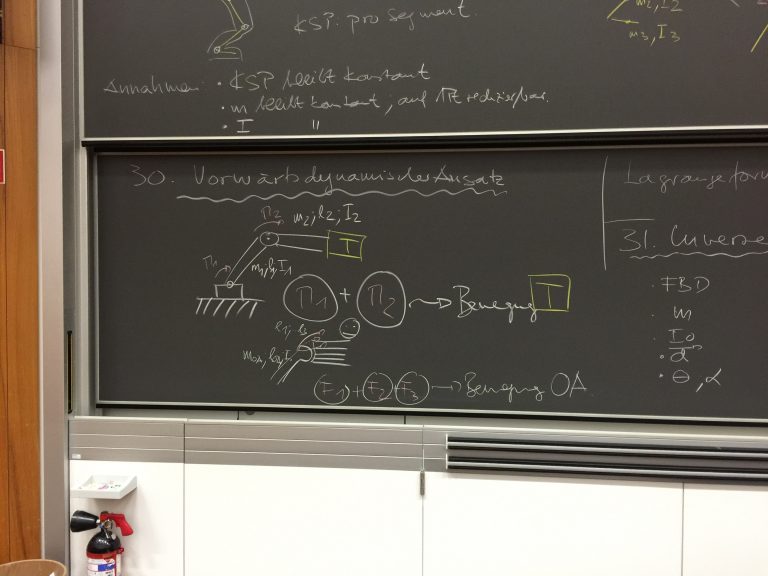 KSP. pro Segment.
m2, I2
m3, I3
Annahmen: • KSP bleibt konstant
• m bleibt konstant; auf
• I "
30. Vorwärtsdynamischer Ansatz
M2 m2; l2; I2
M1 m1, l1, I1 T
M1 + M2 → Bewegung T
F1 + F2 + F3 → Bewegung OA
Lagrangeform
31. Inverse
• FBD
• m
• I0
• d
• θ, α